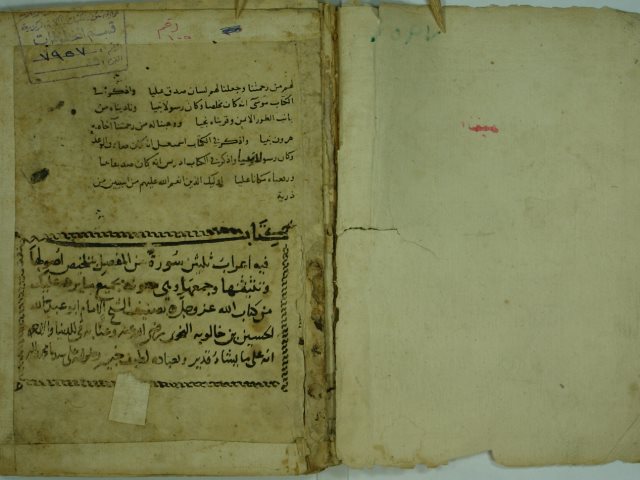 قسم المخطوطات
٧٩٥٧
رقم
لهم من رحمتنا وجعلنا لهم لسان صدق عليا واذكر في
الكتاب موسى انه كان مخلصا وكان رسولا نبيا وناديناه من
جانب الطور الايمن وقربناه نجيا ووهبنا له من رحمتنا اخاه
هرون نبيا واذكر في الكتاب اسمعيل انه كان صادق الوعد
وكان رسولا نبيا واذكر في الكتاب ادريس انه كان صديقا نبيا
ورفعناه مكانا عليا اوليك الذين انعم الله عليهم من النبيين من
ذرية
كتاب
فيه اعراب ثلثين سورة من المفصل بتلخيص اصولها
وتثنيتها وجمعها
من كتاب الله عز وجل تصنيف الشيخ الامام ابو عبد الله
لحسين بن خالويه النحوي
انه على ما يشاء قدير وبعباده لطيف خبير